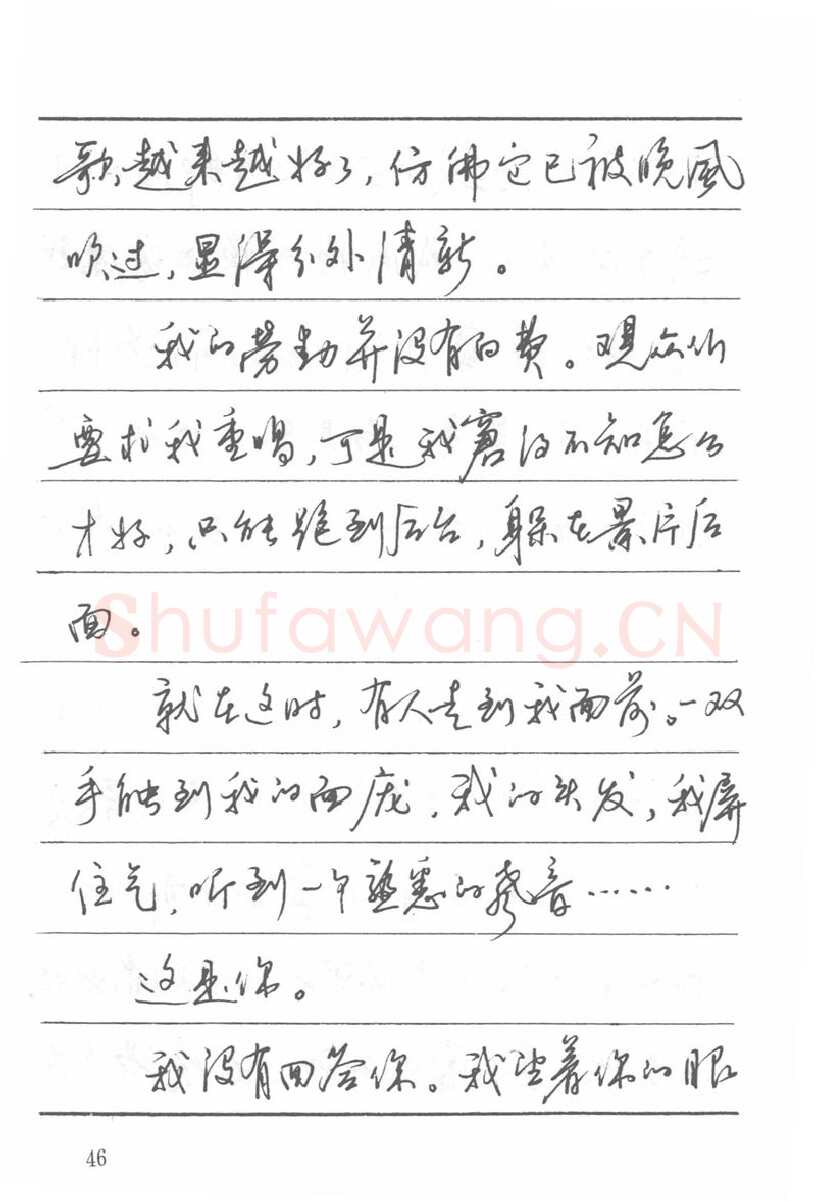 歌越来越好了，仿佛它已被晚风
吹过，显得分外清新。
我的劳动并没有白费。观众们
要求我重唱，可是我窘得不知怎么
才好，只能跑到后台，躲在景片后
面。
Shufawang.CN
就在这时，有人走到我面前。一双
手触到我的面庞，我的头发，我屏
住气，听到一个熟悉的声音……
这是你。
我没有回答你。我望着你的眼
46